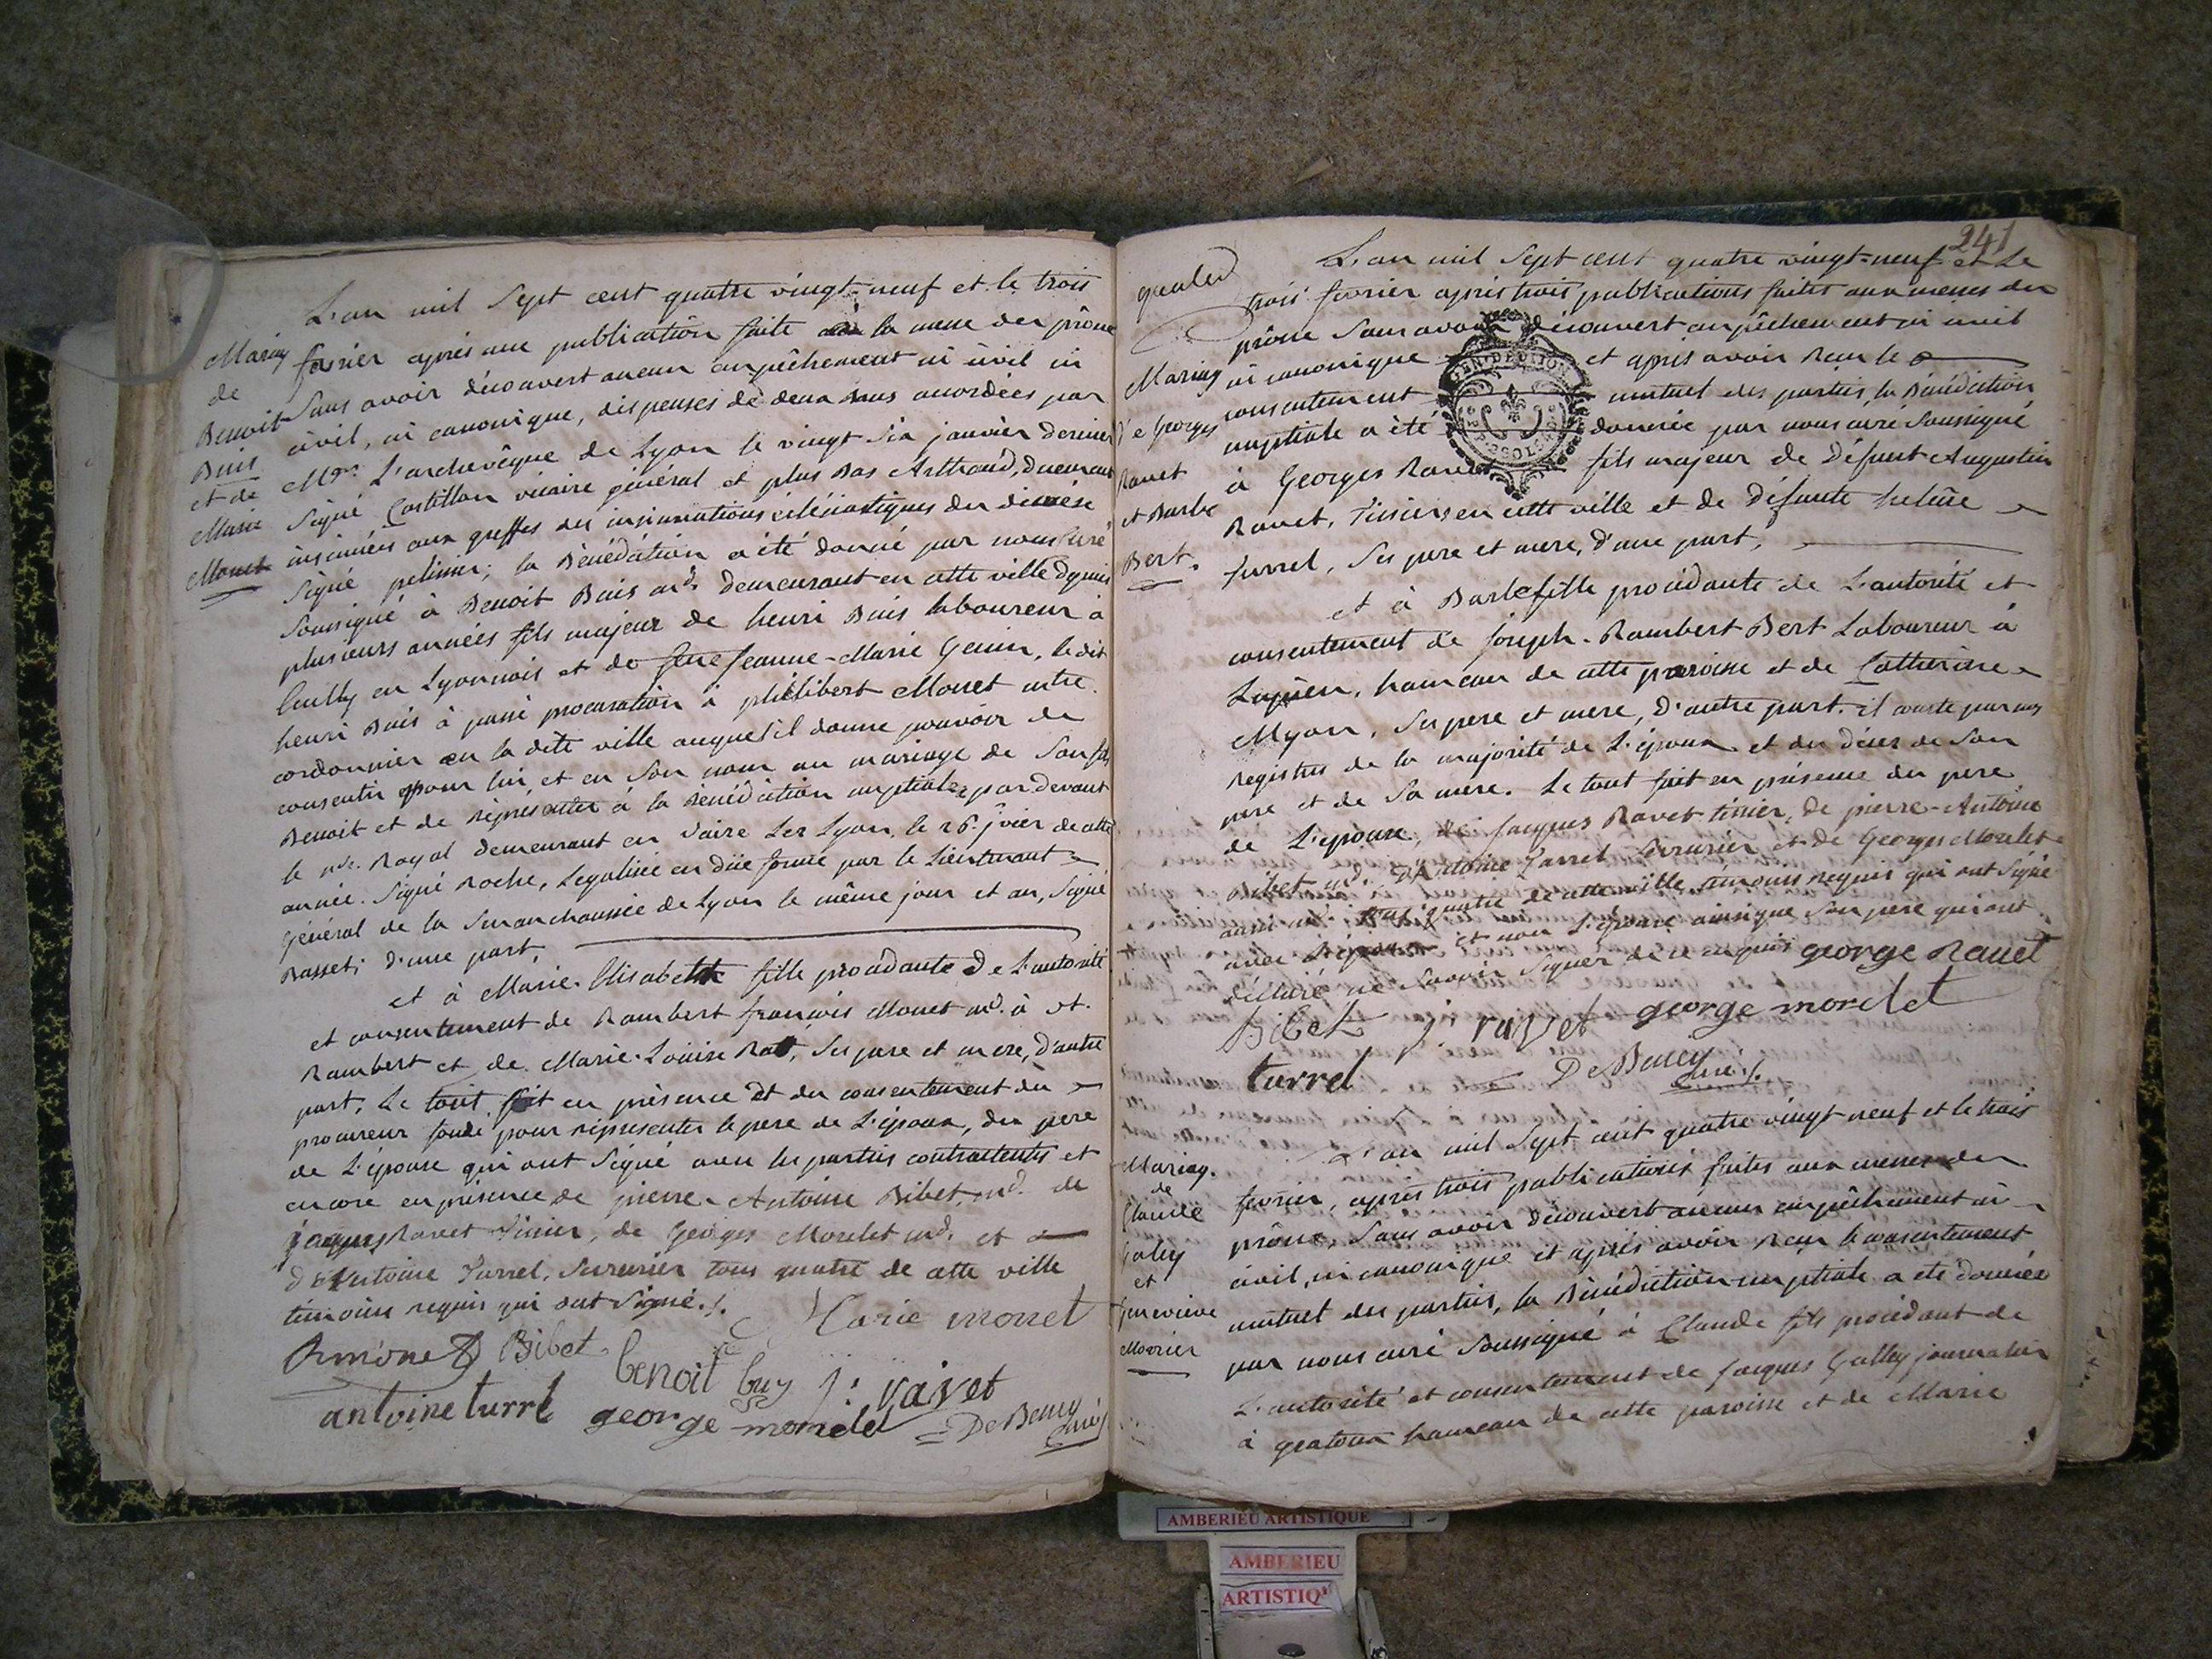 L'an mil Sept cent quatre vingt-neuf et le trois
février après une publication faite à la messe du prône
Sans avoir découvert aucun empêchement ni civil ni
civil, ni canonique, dispenses de deux bans accordées par
Mgr. L'archevêque de Lyon le vingt Six janvier dernier
Signé Castillon vicaire général et plus bas Arthaud, duement
insinuées aux greffes des insinuations écléciastiques du diocése
Signé pelissier; la Bénédiction a été donné par nous Curé
Soussigné à Benoit Buis md. demeurant en cette ville depuis
plusieurs années fils majeur de henri Buis laboureur à
en Lyonnois et de feue Jeanne-Marie Genin, le dit
henri Buis à passé procuration à philibert Monet mtre.
cordonnier en la dite ville auquel il donne pouvoir de
consentir pour lui, et en Son nom au mariage de Son fils
Benoit et de représenter à la Bénédiction nuptiale, par devant
le nre. Royal demeurant en Vaise Lez Lyon, le 26. jvier de cette
année. Signé Roche, Legalisée en düe forme par le Lieutenant
général de la Senanchaussée de Lyon le même jour et an, Signé
Basset; d'une part,
et à Marie-Elisabeth fille procédante de L'autorité
et consentement de Rambert françois Monet md. à st.
Rambert et de Marie-Louise Rat, Ses pere et mere, d'autre
part; Le tout fait en présence et du consentement du
procureur fondé pour représenter le pere de L'époux, du pere
de L'épouse qui ont Signé avec les parties contractentes et
encore en présence de pierre-Antoine Bibet md. de
Jacques Ravet Tissier, de Georges Morelet md. et
d'Antoine Turrel, Serrurier tous quatre de cette ville
témoins requis qui ont Signé./.
Marie monet
Rmonet Bibet
benoit buy j: ravet
antoine turrel george morelet DeBoucy Curé
Mariag
de
Benoit
Buis
et de
Marie
Monet
241
L'an mil Sept cent quatre vingt-neuf et Le
trois février après trois publications faites aux messes du
prône Sans avoir découvert empêchement ni civil
ni canonique et après avoir Reçu le
consentement mutuel des parties, la Bénédiction
nuptiale a été donnée par nous curé Soussigné
à Georges Ravet fils majeur de défunt Augustin
Ravet, Tissier en cette ville et de défunte helene
Turrel, Ses pere et mere, d'une part,
et à Barbe fille procédante de L'autorité et
consentement de Joseph-Rambert Bert Laboureur à
hameau de cette paroisse et de Catherine
Myon, Ses pere et mere, D'autre part. il conste par nos
Registres de la majorité de L'époux et du décès de Son
pere et de Sa mere. Le tout fait en présence du pere
de L'épouse, de Jacques Ravet tissier, de pierre-Antoine
Bibet md. d'Antoine Turrel Serrurier et de Georges Morelet
aussi md. tous quatre de cette ville, témoins requis qui ont Signé
avec L'époux et non L'épouse ainsi que Son pere qui ont
déclaré ne Savoir Signer de ce enquis george Ravet
Bibet j. ravet george morelet
turrel DeBoucy Curé ./.
Mariag
de Georges
Ravet
et Barbe
Bert.
L'an mil Sept cent quatre vingt neuf et le trois
février, après trois publications faites aux messes du
prône, Sans avoir découvert aucun empêchement ni
civil, ni canonique et après avoir Reçu le consentement
mutuel des parties, la Bénédiction nuptiale a été donnée
par nous curé Soussigné à Claude fils procédant de
L'autorité et consentement de Jacques Galley journalier
à gratoux hameau de cette paroisse et de Marie
Mariag.
de
Claude
Galley
et
Genevieve
GEN. DE LYON
AMBERIEU ARTISTIQUE
AMBERIEU
ARTISTIQ